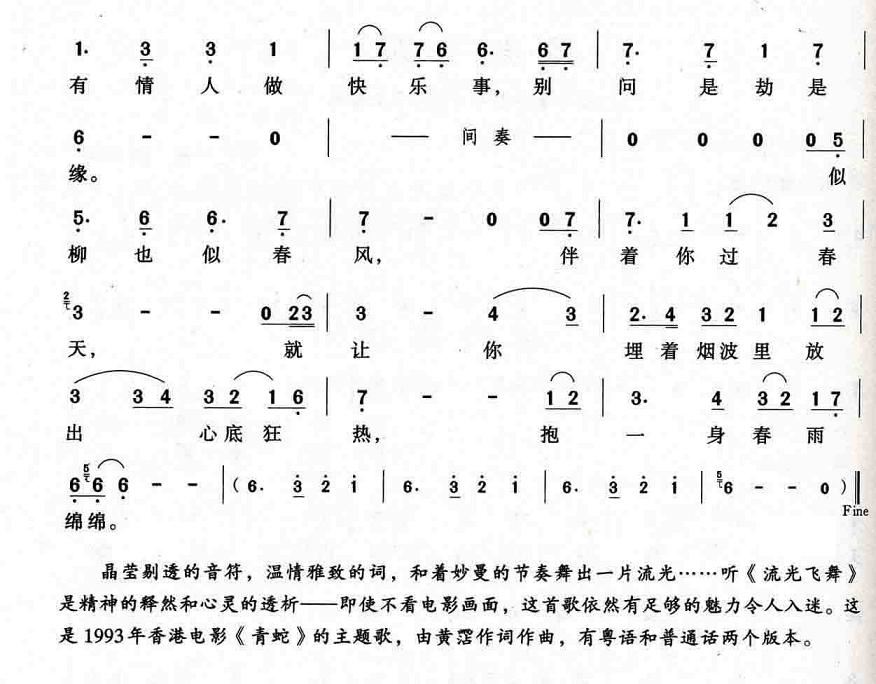 1. 3 3. 1 | 1 7 7 6 6. 6 7 | 7. 7 1 7 |
有 情 人 做 快 乐 事, 别 问 是 劫 是
6 - - 0 | —— 间 奏 —— | 0 0 0 0 5 |
缘。 似
5. 6 6. 7 | 7 - 0 0 7 | 7. 1 1 2 3 |
柳 也 似 春 风, 伴 着 你 过 春
2 3 - - 0 2 3 | 3 - 4 3 | 2. 4 3 2 1 1 2 |
天, 就 让 你 埋 着 烟 波 里 放
3 3 4 3 2 1 6 | 7 - - 1 2 | 3. 4 3 2 1 7 |
出 心 底 狂 热, 抱 一 身 春 雨
6 5 6 6 - - | ( 6. 3 2 1 | 6. 3 2 1 | 6. 3 2 1 | 5 6 - - 0 ) ‖
绵 绵。 Fine
晶莹剔透的音符，温情雅致的词，和着妙曼的节奏舞出一片流光……听《流光飞舞》
是精神的释然和心灵的透析——即使不看电影画面，这首歌依然有足够的魅力令人入迷。这
是1993年香港电影《青蛇》的主题歌，由黄霑作词作曲，有粤语和普通话两个版本。